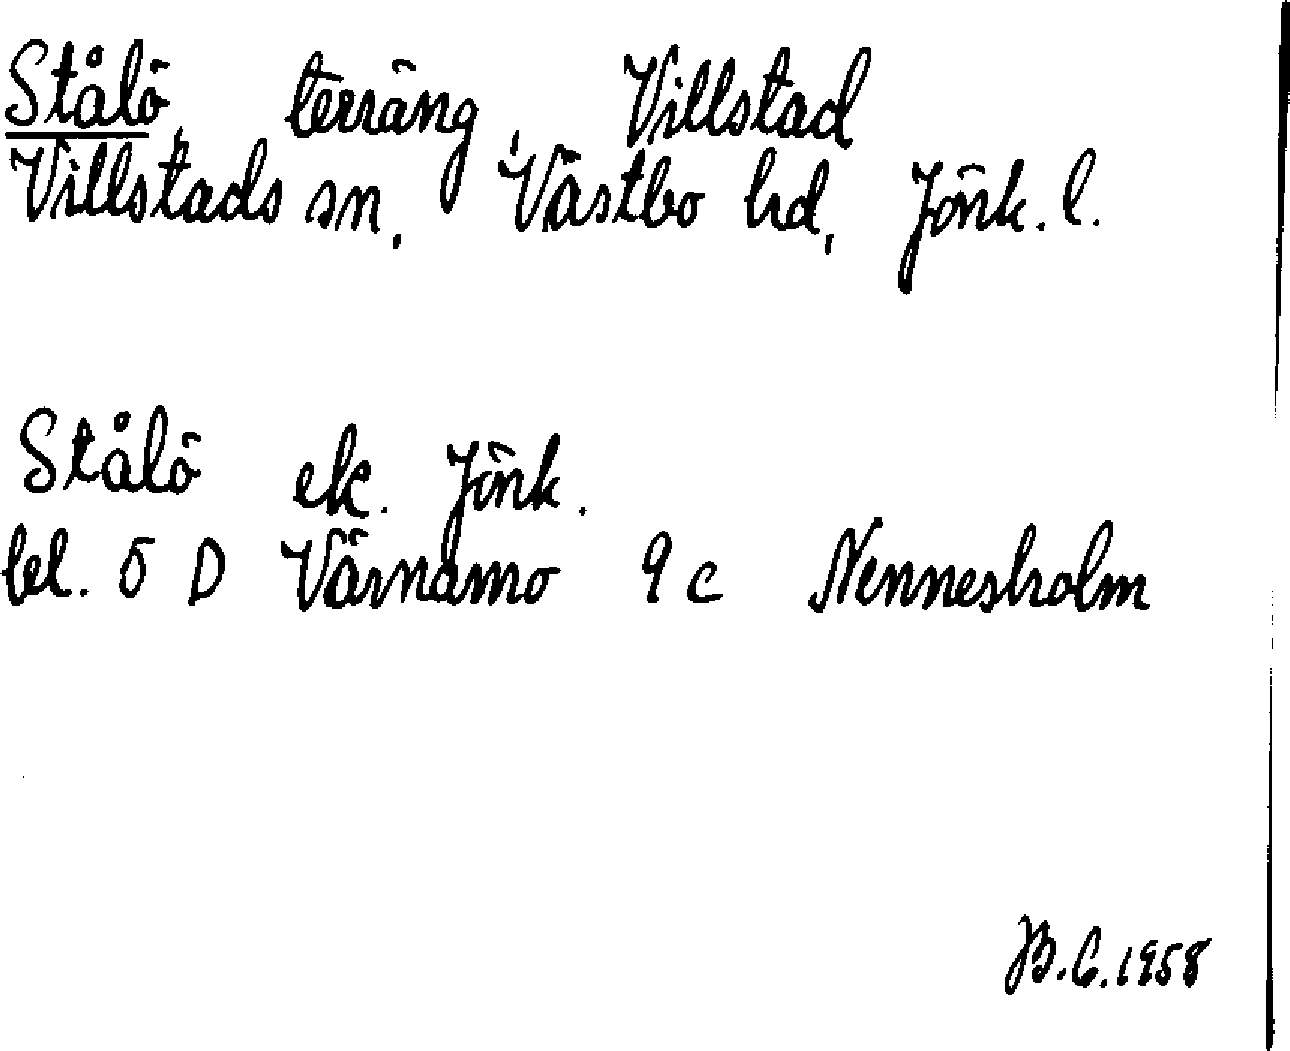 Stålö, terräng, Villstad
Villstads sn, Västbo hd, Jönk. l.
Stålö ek. Jönk.
bl. 5 D Värnamo 9 c Nennesholm
B.C. 1958